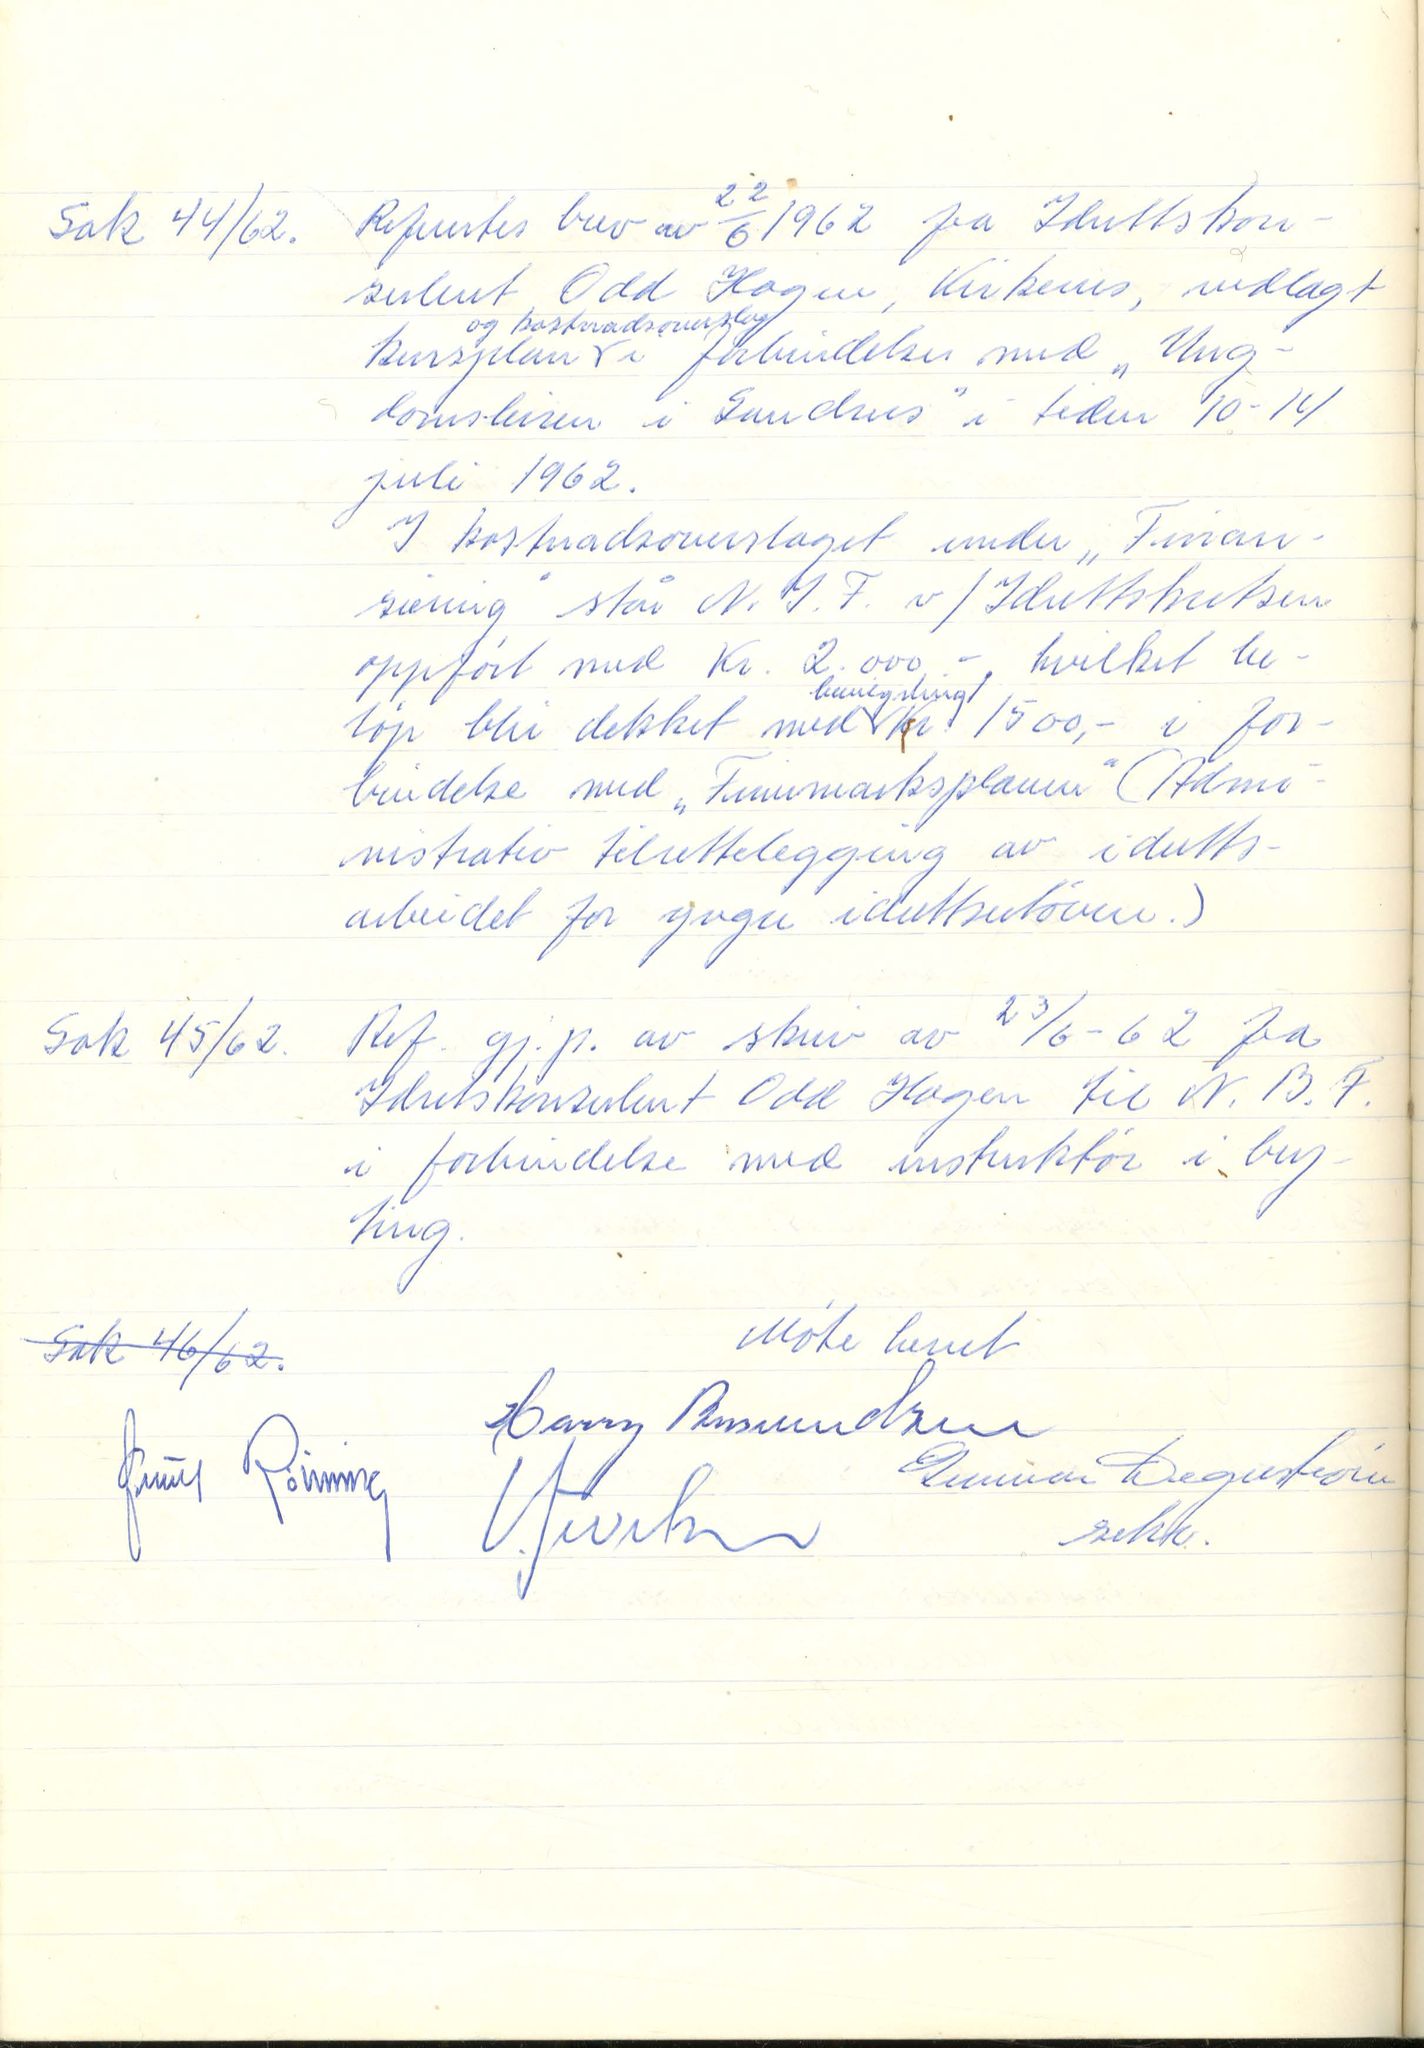 Sak 44/62. Refereertes brev av 22/6 1962 fra Idrettskon-
sulent Odd Hagen, Kirkenes, vedlagt
og kostnadsoverslag
kursplan i forbindelse med „Ung-
domsleiren i Sandnes" i tiden 10-14
juli 1962.
I kostnadsoverslaget under „Finan-
siering" står N.I.F. v/Idrettskretsen
oppført med Kr. 2.000,-, hvilket be-
bevilgning
løp blir dekket med Kr. 1500,- i for-
bindelse med „Finnmarksplanen" (Admi-
nistrativ tilrettelegging av idretts-
arbeidet for yngre idrettsutøvere.)
Sak 45/62. Ref. gj.p. av skriv av 23/6-62 fra
Idretskonsulent Odd Hagen til N.B.F.
i forbindelse med instruktör i bry-
ting.
Sak 46/62.
Møte hevet
Harry
Rönning
Gunnar
sekr.